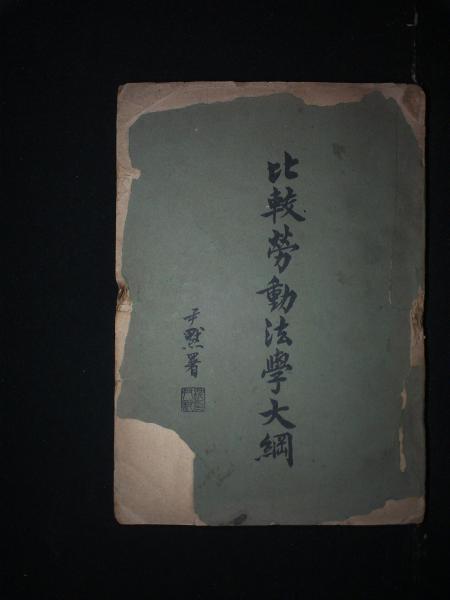 比較勞動法學大綱
尹默署